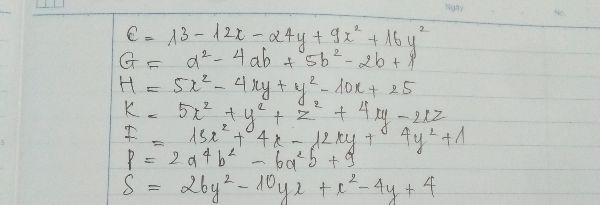 Ngày No.
C = 13 - 12x - 24y + 9x² + 16y²
G = a² - 4ab + 5b² - 2b + 1
H = 5x² - 4xy + y² - 10x + 25
K = 5x² + y² + z² + 4xy - 2xz
I = 13x² + 4x - 12xy + 4y² + 1
P = 2a⁴b² - 6a²b + 9
S = 26y² - 10yx + x² - 4y + 4